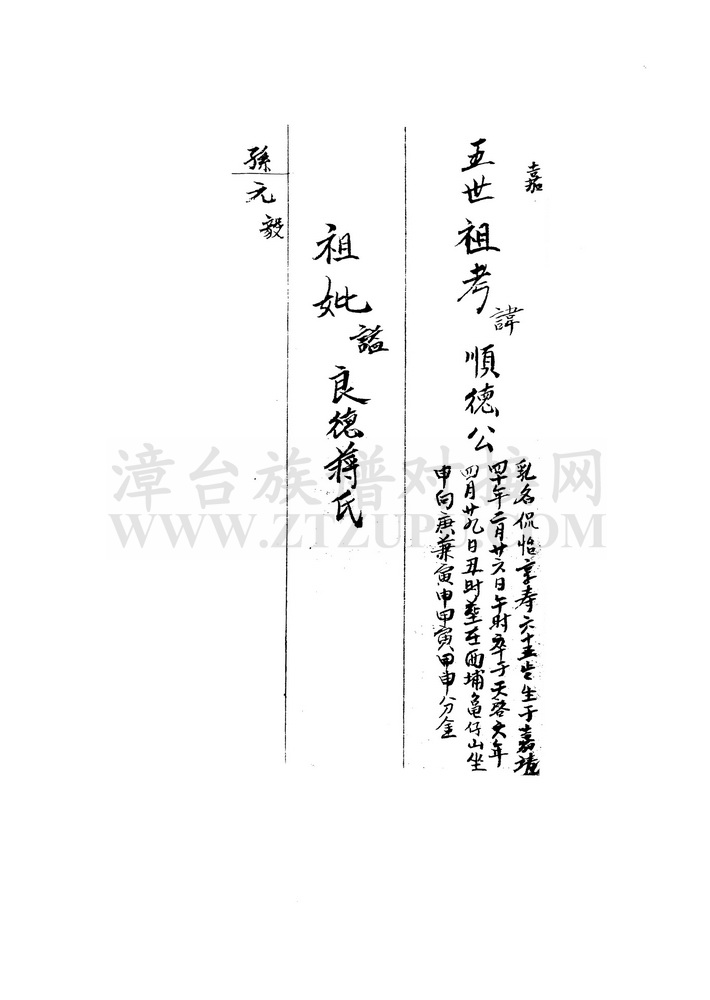 嘉
五世祖考諱順德公
乳名侃怡享寿六十五岁生于嘉靖
四十年二月廿六日午时卒于天啓六年
四月廿九日丑时葬在西埔龟仔山坐
申向庚兼寅申甲寅甲申分金
祖妣謚良德蒋氏
孫元毅
漳台族谱对接网
WWW.ZTZUPU.COM